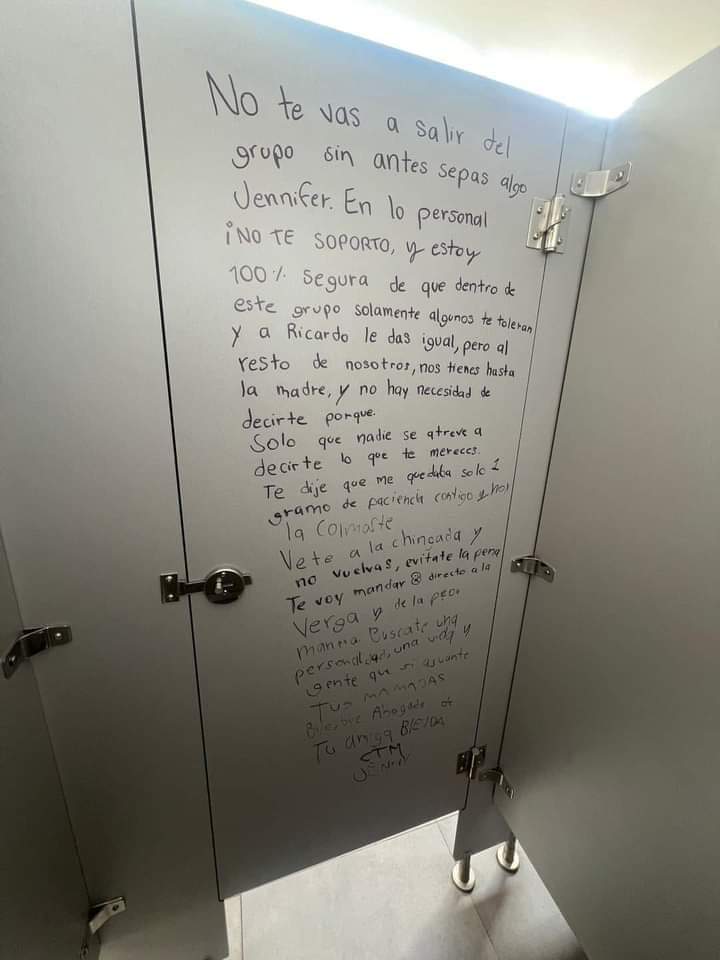 No te vas a salir del
grupo sin antes sepas algo
Jennifer. En lo personal
¡NO TE SOPORTO, y estoy
100% segura de que dentro de
este grupo solamente algunos te toleran
y a Ricardo le das igual, pero al
resto de nosotros, nos tienes hasta
la madre, y no hay necesidad de
decirte porque.
Solo que nadie se atreve a
decirte lo que te mereces.
Te dije que me quedaba solo 1
gramo de paciencia contigo y hoy
la colmaste
Vete a la chingada y
no vuelvas, evitate la pena
Te voy mandar directo a la
Verga y de la peor
manera Buscate una
personalidad, una vida y
gente que si aguante
Tus MAMADAS
Abogado
Tu amiga
CTM
JENNY